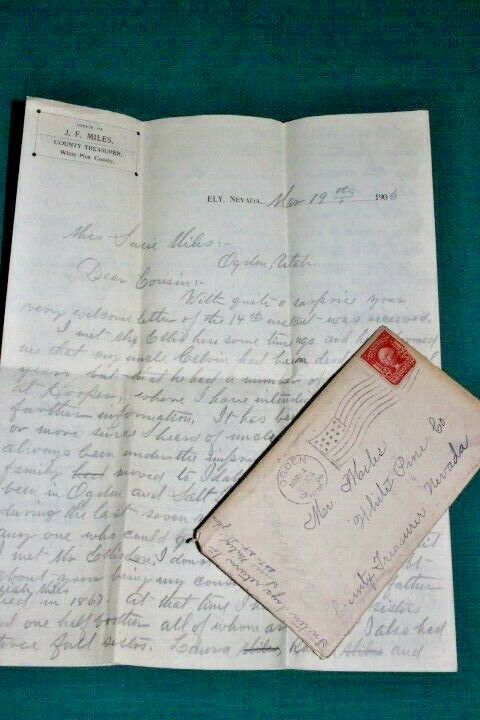 OFFICE OF
J. F. MILES,
COUNTY TREASURER,
White Pine County.
ELY, NEVADA, Mar 19th 1906
Miss Susie Miles:-
Ogden, Utah.
Dear Cousin:-
With quite a surprise your
very welcome letter of the 14th instant was received.
I met Mr Ellis here some time ago and he informed
me that my uncle Calvin had been dead
years but that he had a number of
at Hooper, where I have intend
farther information. It has be
or more since I heard of uncle
always been under the impre
family had moved to Idah
been in Ogden and Salt
during the last seven
any one who could g
I met Mr Ellis
about your being my cous
father
died in 1867. at that time I
sisters
and one half brother all of whom are
I also had
three full sisters. Laura
and
OGDEN
MAR 14
Mr Miles
White Pine Co
County Treasurer Nevada